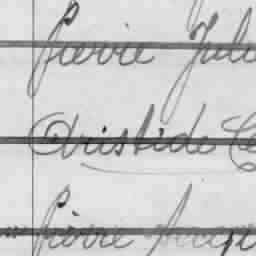 Pierre Jule
Aristide
Pierre